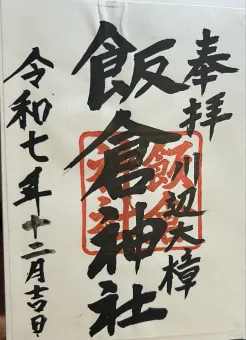 奉拝
川辺大樟
飯倉神社
令和七年十二月吉日
飯倉神社